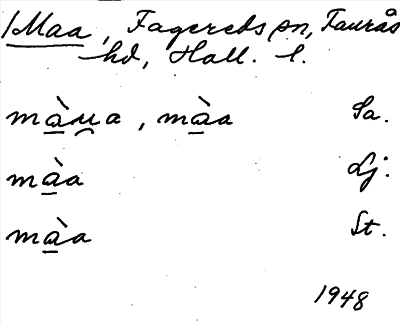 /Maa, Fagereds sn, Faurås
hd, Hall. l.
màu̯a, màa Sa.
màa Lj.
màa St.
1948